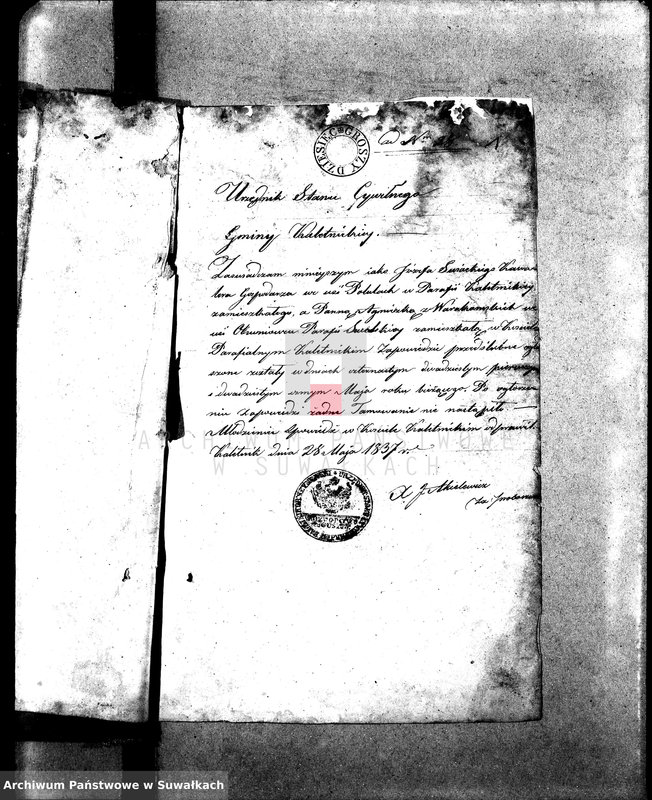 DZIESIĘC GROSZY
ad No
Urzędnik Stanu Cywilnego
Gminy Kaletnickiey.
Zaświadczam ninieyszym iako Józefa Swackiego Kawa-
lera Gospodarza we wsi Polulach w Parafii Kaletnickiey
zamieszkałego, a Panną Agnieszką z Warakomskich we
wsi Parafii zamieszkałą, w Kościele
Parafialnym Kaletnickim Zapowiedzie przedślubne ogło-
szone zostały w dniach czternastym dwudziestym pierwszym
i dwudziestym ósmym Maja roku bieżącego. Po ogłosze-
niu zapowiedzi żadne Tamowanie nie nastąpiło
Młodzieniec Spowiedź w Kościele Kaletnickim odprawił.
Kaletnik dnia 28 Maja 1837 r.
X J.
ARCHIWUM PAŃSTWOWE
W SUWAŁKACH
Archiwum Państwowe w Suwałkach